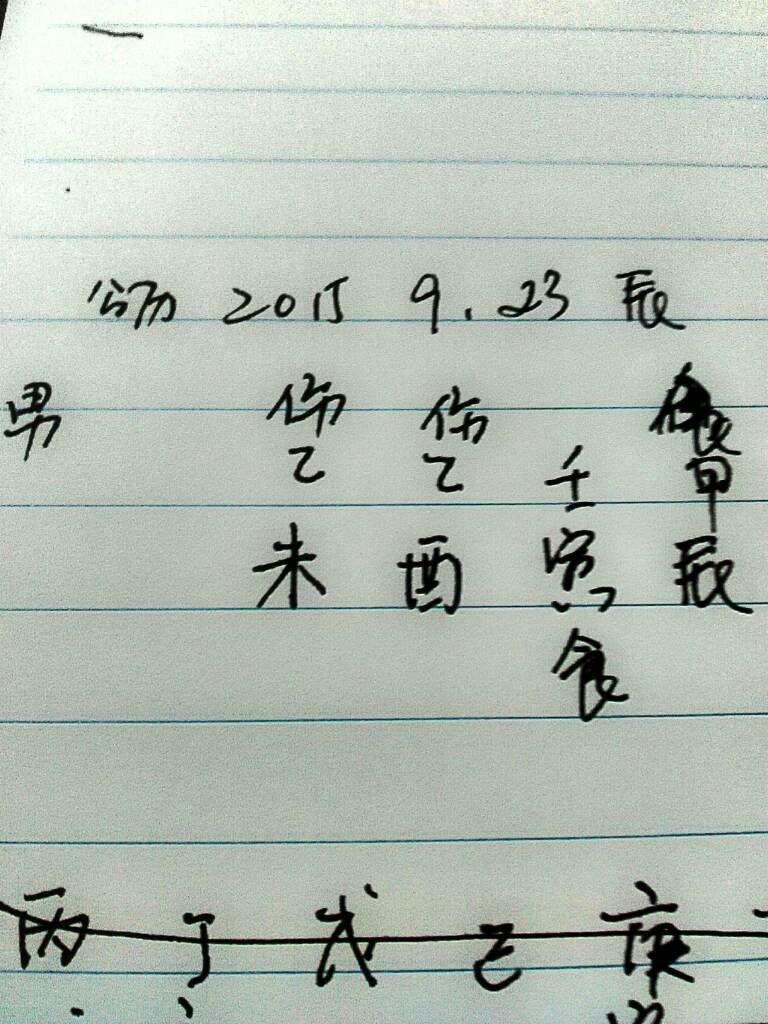 公历 2015 9.23 辰
男 伤 伤 食
乙 乙 壬 甲
未 酉 寅 辰
食
丙 丁 戊 己 庚